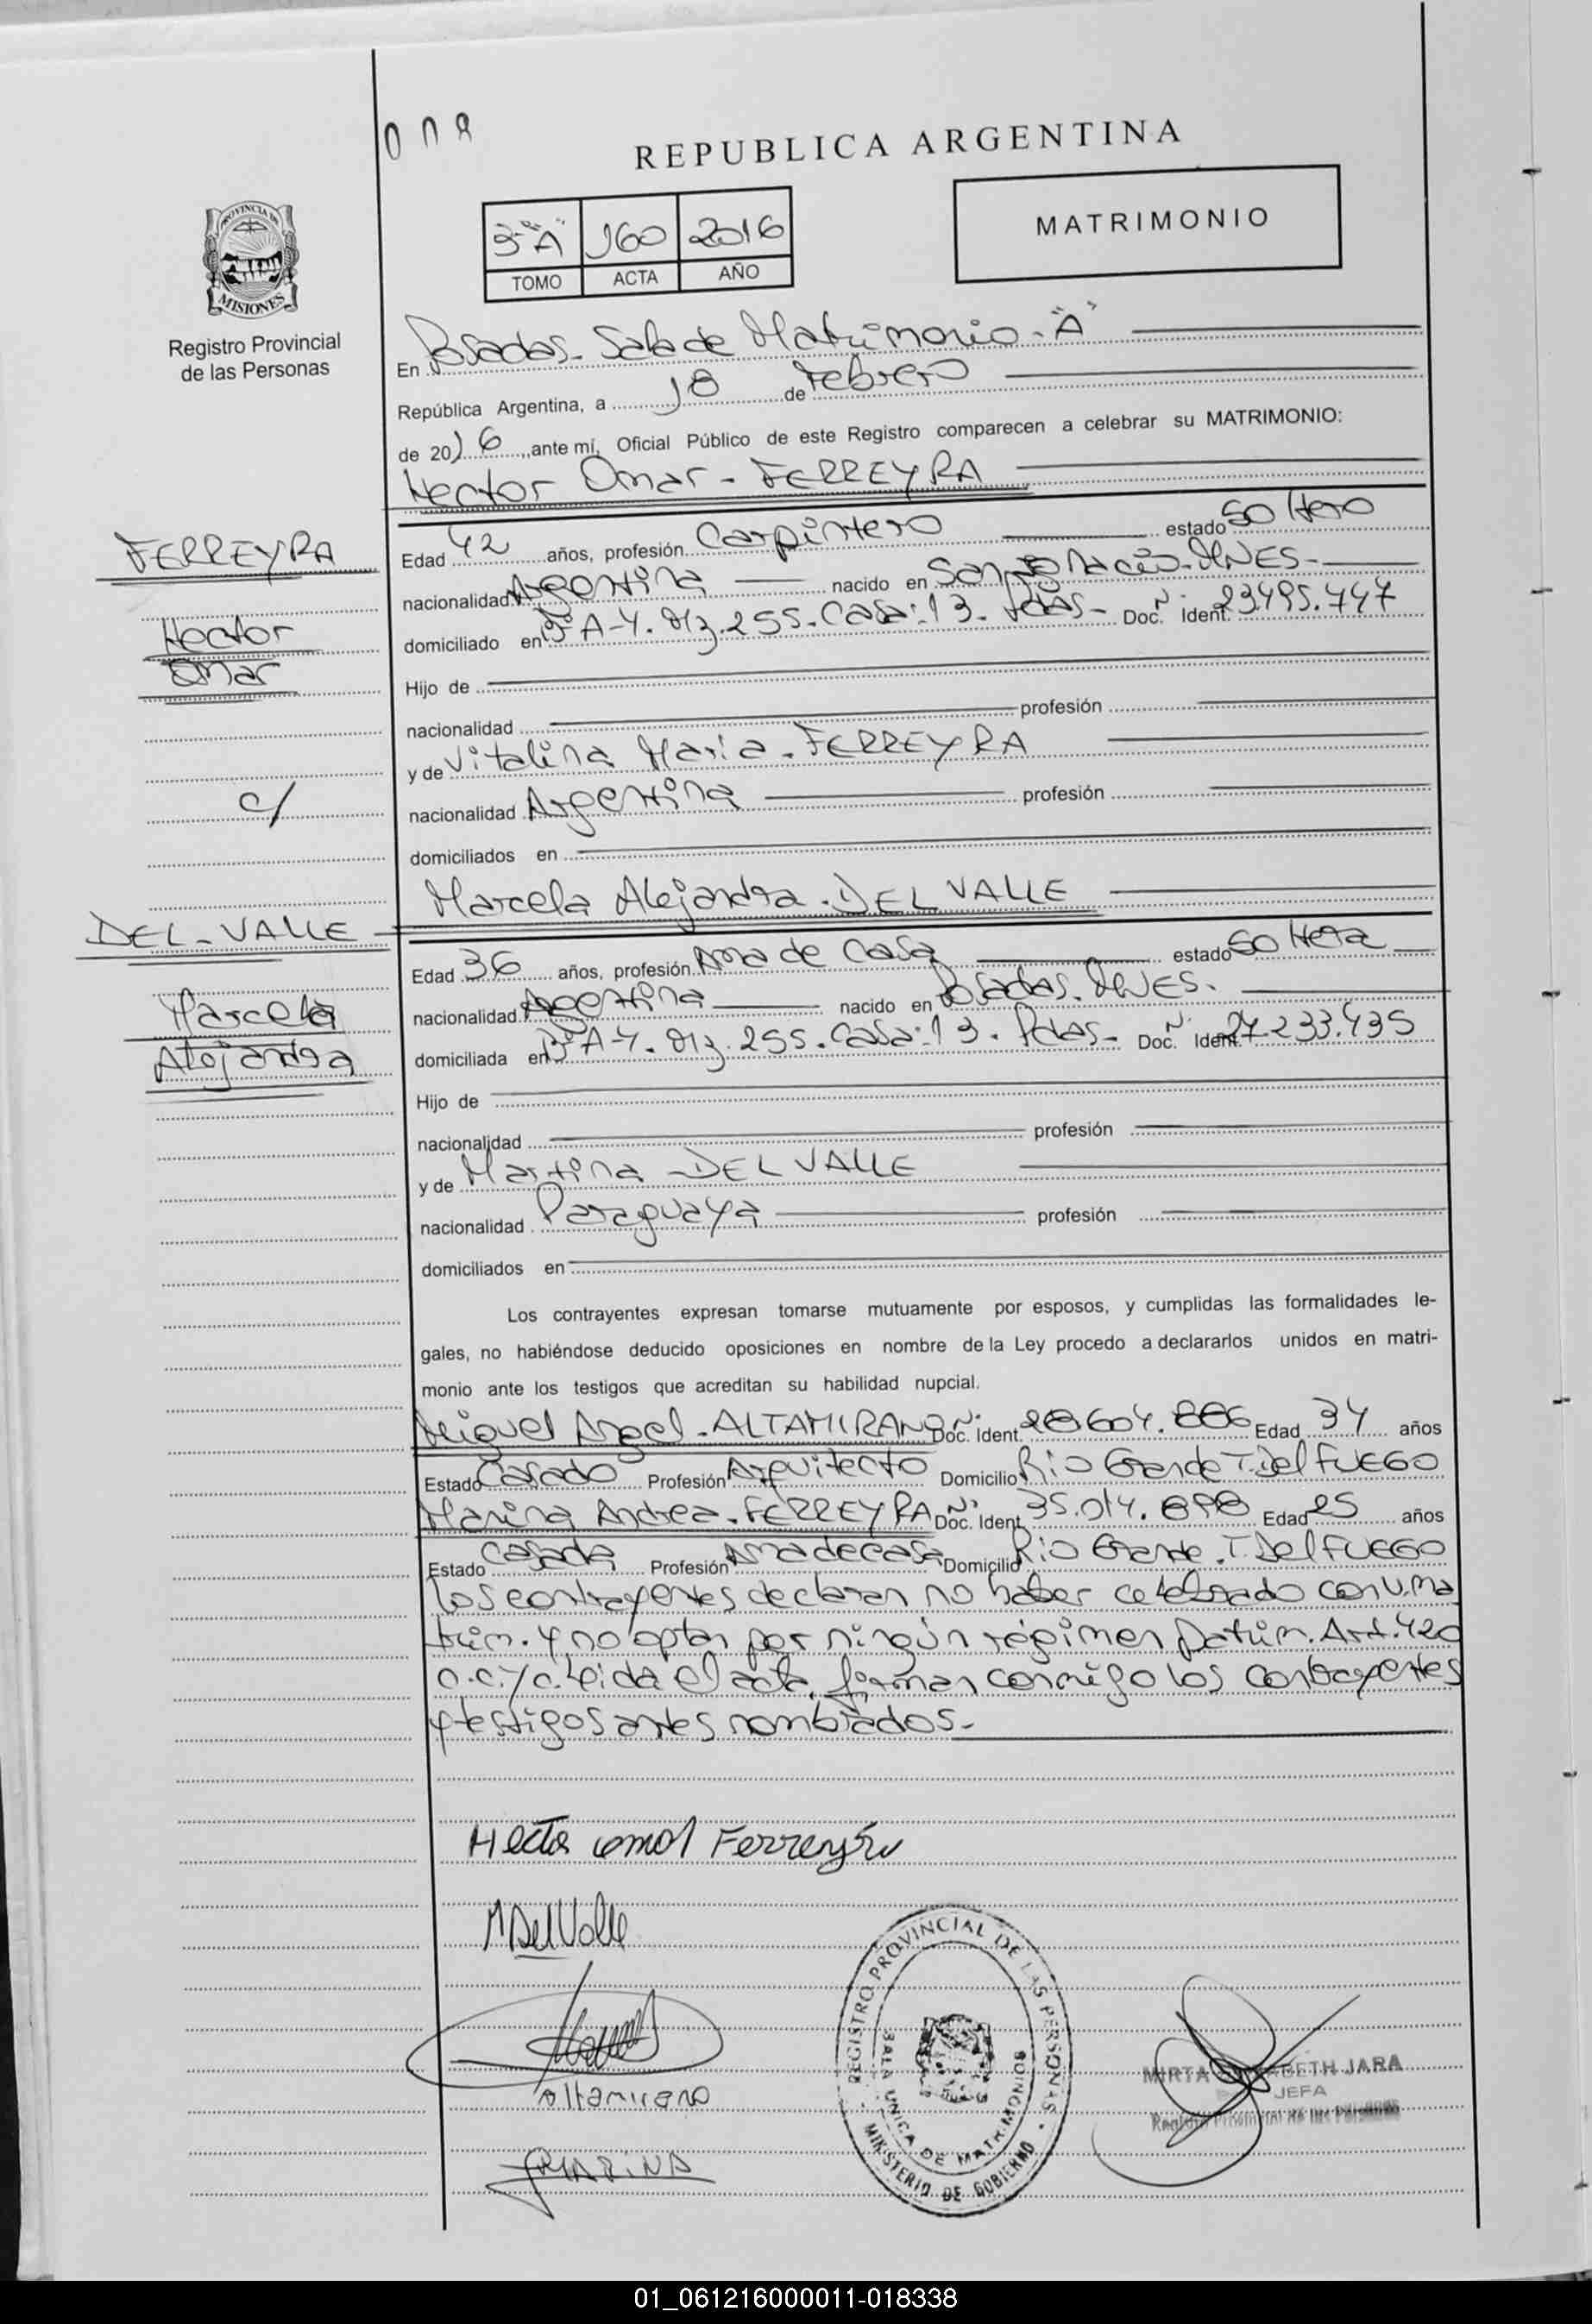 008
REPUBLICA ARGENTINA
3-"A" 160 2016
TOMO ACTA AÑO
MATRIMONIO
PROVINCIA DE
MISIONES
Registro Provincial
de las Personas
En Posadas- Sala de Matrimonio-"A"
República Argentina, a 18 de Febrero
de 2016 ante mí, Oficial Público de este Registro comparecen a celebrar su MATRIMONIO:
Hector Omar - FERREYRA
FERREYRA
Hector
Omar
c/
DEL-VALLE
Marcela
Alejandra
Edad 42 años, profesión Carpintero estado Soltero
nacionalidad Argentina nacido en San Ignacio-MNES-
domiciliado en Bº A-4. Mz. 255. Casa: 13. Pdas- Doc. Nº Ident. 23.495.447
Hijo de
nacionalidad profesión
y de Vitalina Maria - FERREYRA
nacionalidad Argentina profesión
domiciliados en
Marcela Alejandra - DEL VALLE
Edad 36 años, profesión Ama de Casa estado Soltera
nacionalidad Argentina nacido en Posadas. MNES.
domiciliada en Bº A-4. Mz. 255. Casa: 13. Pdas- Doc. Nº Ident. 27.233.435
Hijo de
nacionalidad profesión
y de Martina - DEL VALLE
nacionalidad Paraguaya profesión
domiciliados en
Los contrayentes expresan tomarse mutuamente por esposos, y cumplidas las formalidades le-
gales, no habiéndose deducido oposiciones en nombre de la Ley procedo a declararlos unidos en matri-
monio ante los testigos que acreditan su habilidad nupcial.
Miguel Angel - ALTAMIRANO Doc. Nº Ident. 28.604.886 Edad 34 años
Estado Casado Profesión Arquitecto Domicilio Rio Grande T. Del FUEGO
Marina Andrea - FERREYRA Doc. Nº Ident. 35.014.898 Edad 25 años
Estado Casada Profesión Ama de casa Domicilio Rio Grande. T. Del FUEGO
Los contrayentes declaran no haber celebrado conv. ma
trim. y no optan por ningún régimen Patrim. Art. 420
c.c.y c. Leida el acta, firman conmigo los contrayentes
y testigos antes nombrados-
Hector omar Ferreyra
M Del Valle
Altamirano
MARINA
REGISTRO PROVINCIAL DE LAS PERSONAS
SALA UNICA DE MATRIMONIOS
MINISTERIO DE GOBIERNO
MIRTA JARA
JEFA
Registro Provincial de las Personas
01_061216000011-018338